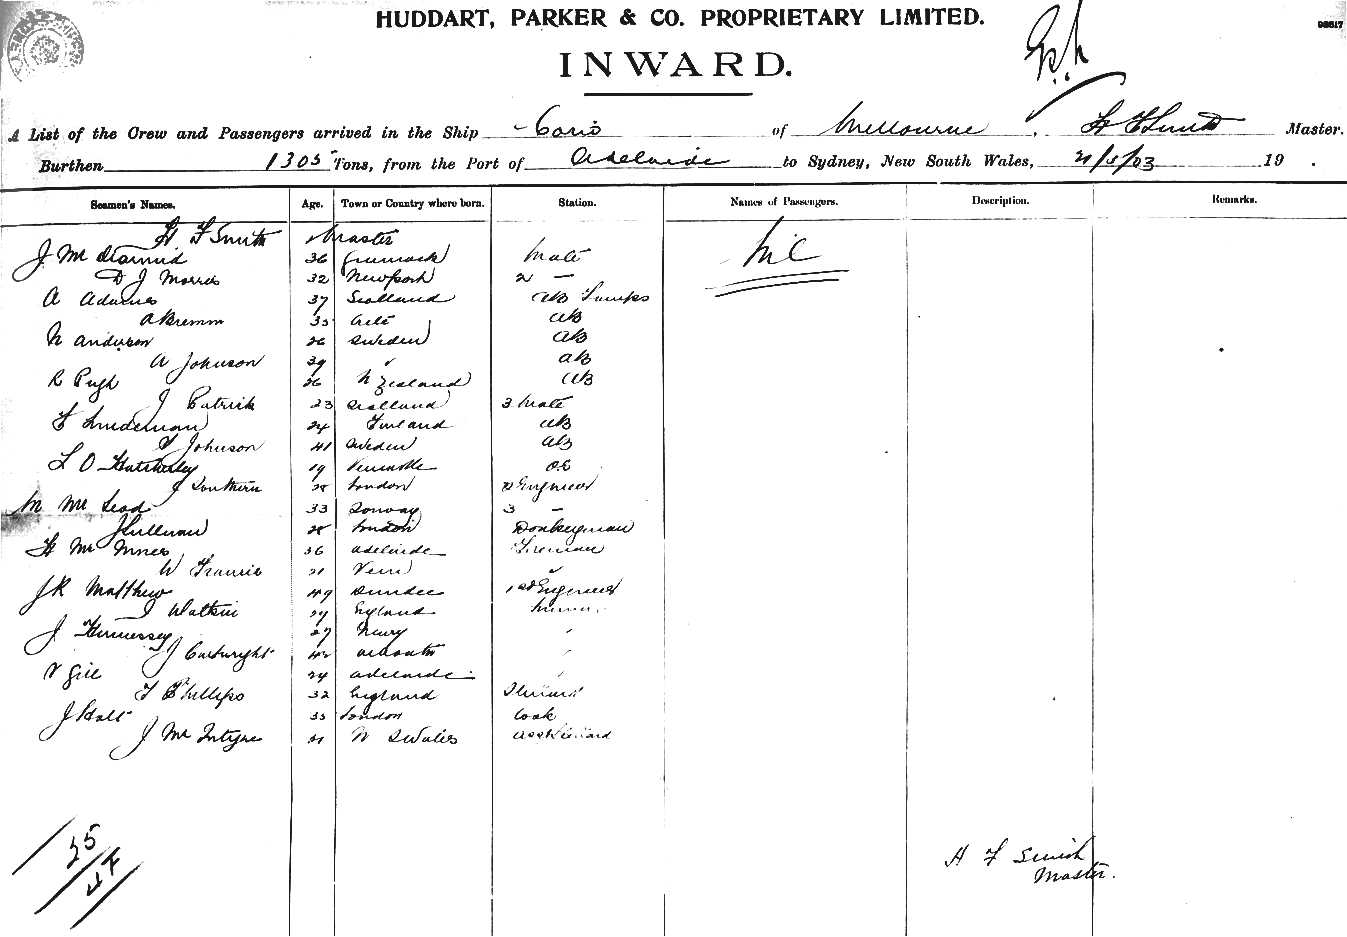 HUDDART, PARKER & CO. PROPRIETARY LIMITED.
98517
INWARD.
A List of the Crew and Passengers arrived in the Ship Corio of Melbourne, H F Smith Master.
Burthen 1305 Tons, from the Port of Adelaide to Sydney, New South Wales, 21/5/03 19 .
Seamen's Names. Age. Town or Country where born. Station. Names of Passengers. Description. Remarks.
H F Smith Master
J Mc Diarmid 36 Greenock Mate Nil
D J Morris 32 Newport 2 —
A Adams 37 Scotland AB Lamps
A Bremm 35 AB
N Anderson 26 Sweden AB
A Johnson 39 " AB
R Pugh 26 N Zealand AB
J Patrick 23 Scotland 3 Mate
F Lindeman 24 Finland AB
V Johnson 41 Sweden AB
L O Hatherley 19 OS
J Southern 28 London 2 Engineer
M Mc Leod 33 3 —
J Sullivan 28 London Donkeyman
H Mc Innes 36 Adelaide Fireman
W Francis 21 "
J R Matthew 49 Dundee 1st Engineer
J Watkins 29 England
J Hennessy 27 Newry "
J Cartwright 42 "
V Gill 24 Adelaide "
F Phillips 32 England Steward
J Holt 35 London Cook
J Mc Intyre 21 N S Wales Ass Steward
25
H F Smith
Master.